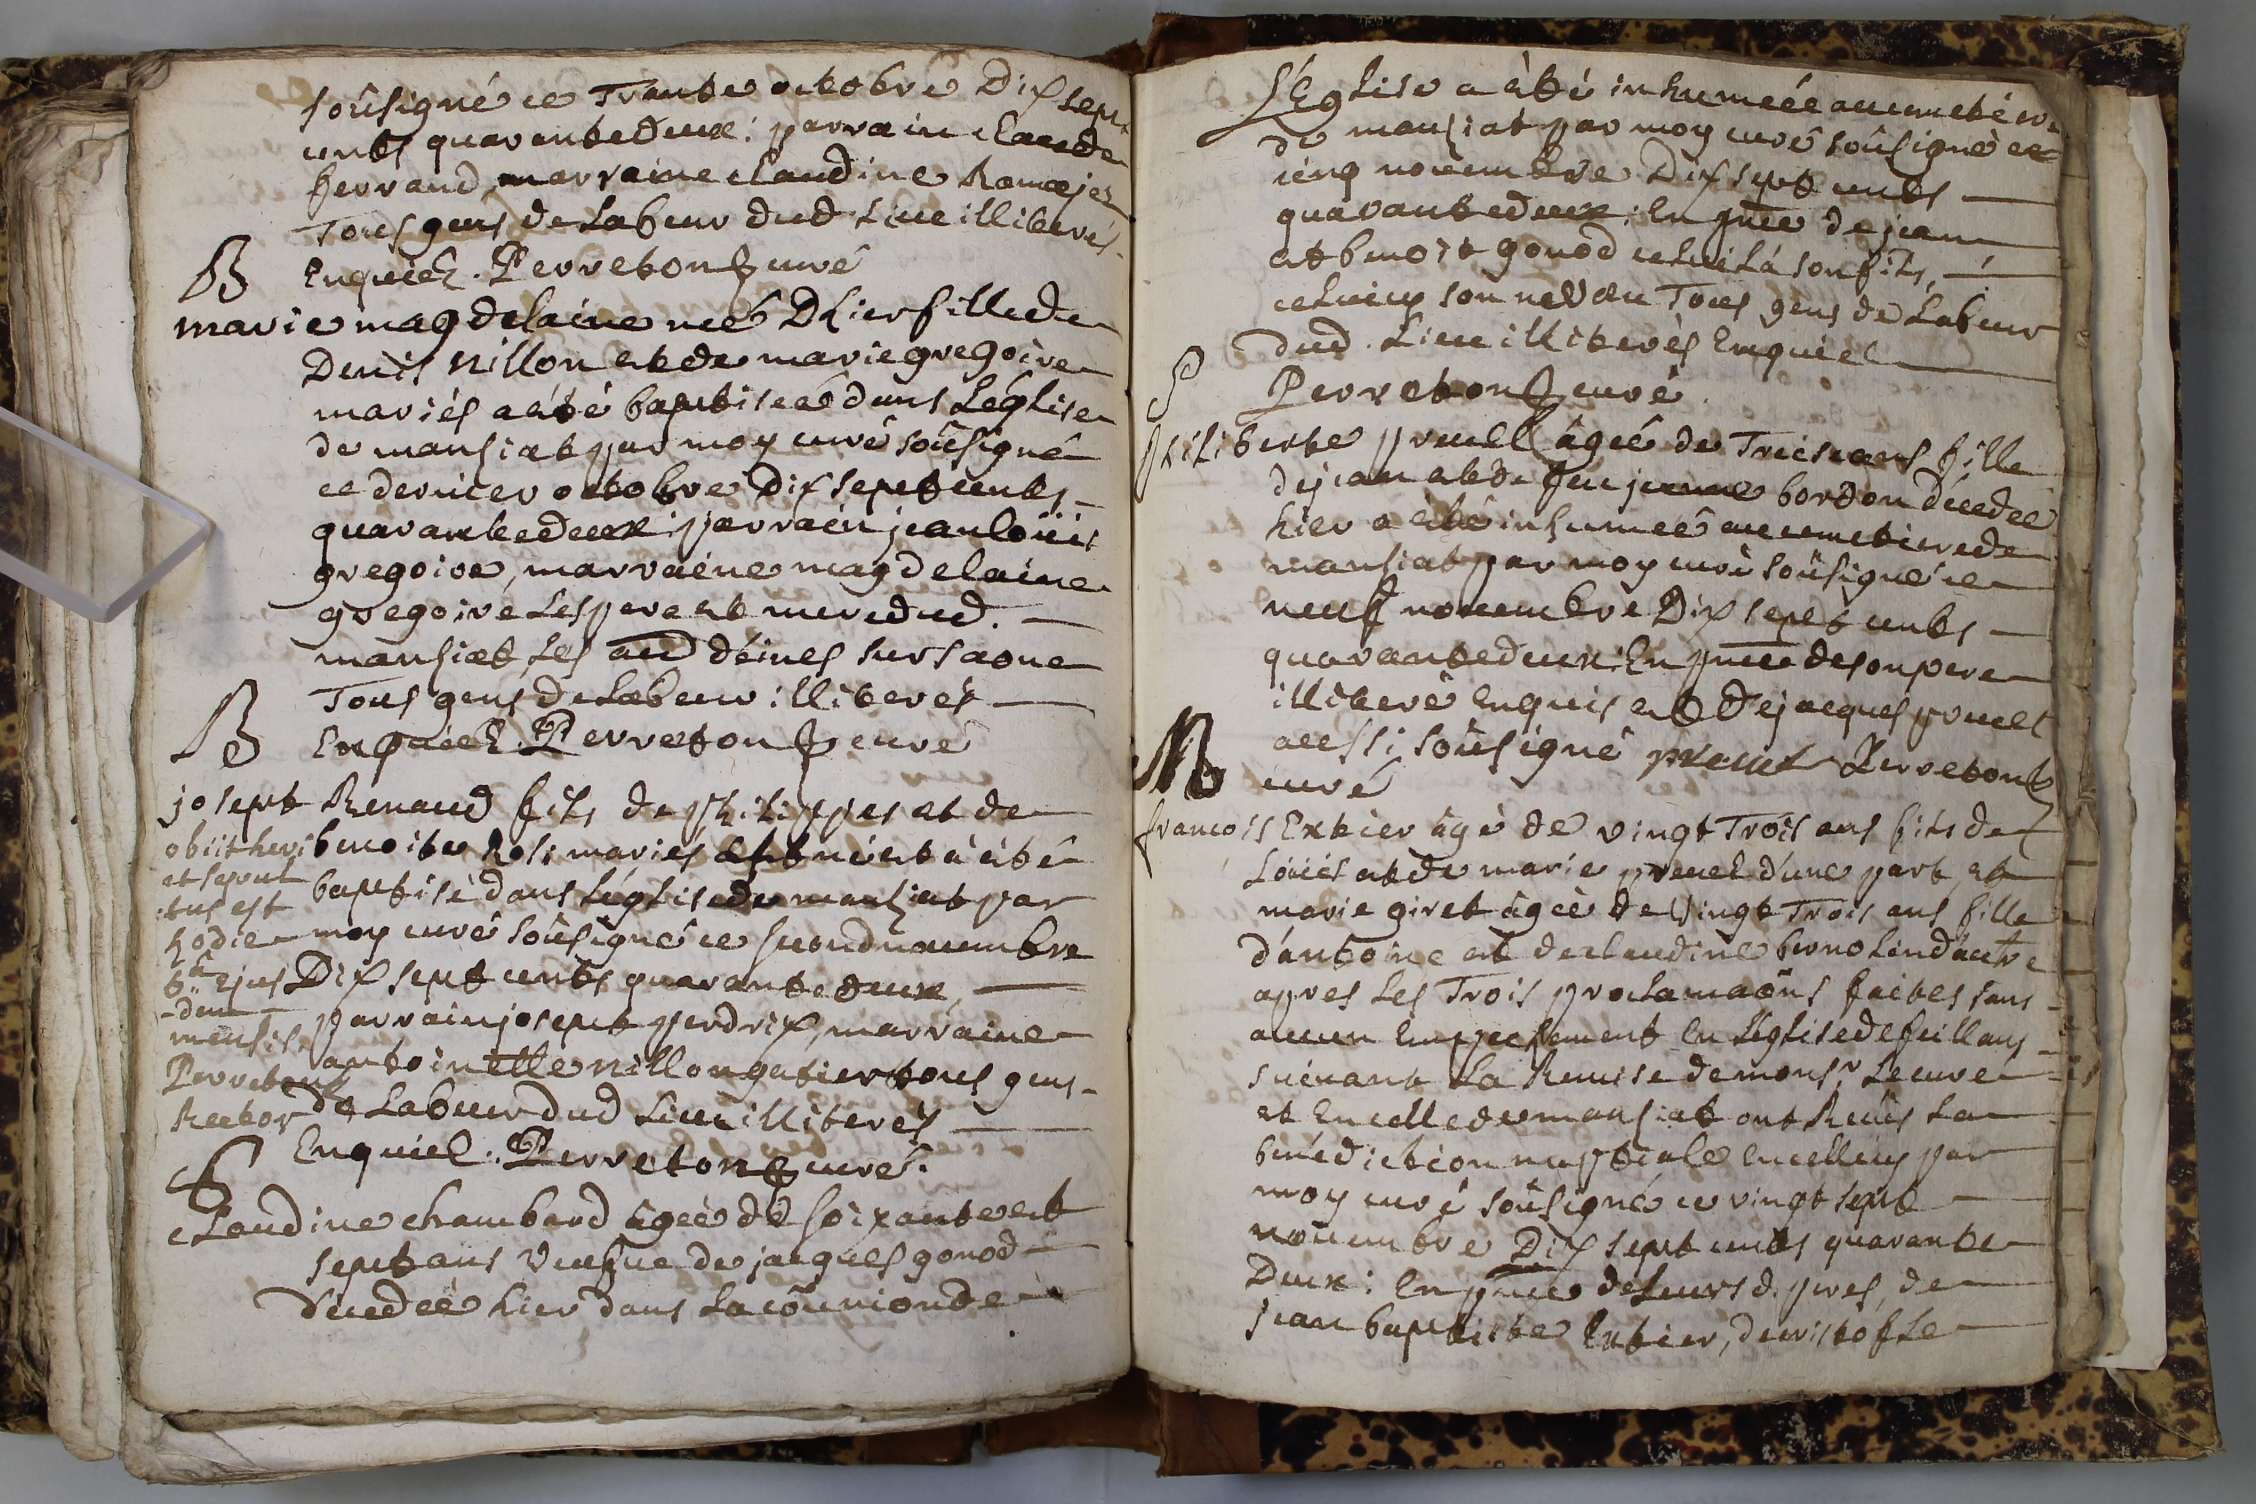 soûsigné ce Trante octobre Dix sept
cents quarantedeux : parrain claude
ferrand, marraine claudine
Tous gens de Labeur dud Lieu illiterés
Enquiel. Perreton curé
B
marie magdelaine née D'hier fille de
Denis Nillon et de marie gregoire
mariés a été baptiseé dans L'église
de mansiat par moy curé soûsigné
ce dernier octobre Dix sept cents
quarantedeux : parrain jean loüis
gregoire, marraine magdelaine
gregoire Les pere et mere dud.
mansiat, Les aud d'éines sur saone
Tous gens de Labeur illiterés
B
Enquiel. Perreton curé
josept Renaud fils de philippes et de
benoite Rosi mariés est né et à été
baptisé dans L'église de mansiat par
moy curé soûsigné ce second novembre
Dix sept cents quarantedeux,
parrain josept perdrix, marraine
antoinette nillon gatier tous gens
de Labeur dud Lieu illiterés
Enquiel. Perreton curé.
obiit heri
et sepul
tus est
hodie
6a ejus
-dem
mensis
Perreton
Rector
S
claudine chambard âgeé de soixante et
sept ans Veufue de jacques gonod
décedeé hier dans La coûmion de
L'Eglise a èté inhumeée au cimetiére
de mansiat par moy curé soûsigné ce
cinq nouembre Dix sept cents
quarantedeux : En pnce de jean
et benoit gonod celui Là son fils,
celuicy son neveu Tous gens de Labeur
dud. Lieu illiterés Enquiel
S
Perreton curé.
philiberte pruel âgeé de Treise ans fille
de jean et de feu jeanne bordon décedeé
hier a èté inhumeé au cimetiere de
mansiat par moy curé soûsigné ce
neuf nouembre Dix sept cents
quarantedeux : En pnce de son pere
illiteré Enquis et de jacques pruel
aussi soûsigné pruel Perreton
M
curé
francois Extier âgé de vingt Trois ans fils de
Loüis et de marie preuel d'une part, et
marie giret âgeé de Vingt Trois ans fille
d'antoine et de claudine bernolin d'autre
apres Les Trois proclamaôns faites sans
aucun Empechement En L'église de feillans
suiuant La Remise de monsr Le curé
et En celle de mansiat ont Reçus La
bénediction nuptiale En cellecy par
moy curé soûsigné ce vingt sept
nouembre Dix sept cents quarante
Deux : En pnce de Leurs d. peres, de
jean baptiste Extier, de cristofle